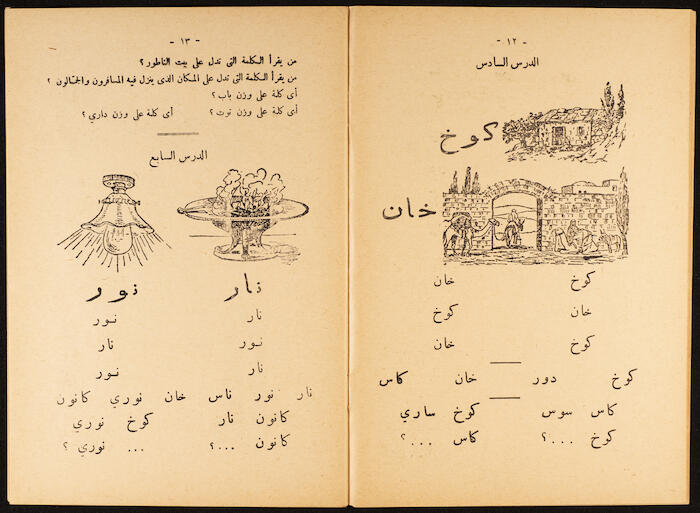 - ١٢ -
الدرس السادس
كوخ
خان
كوخ خان
خان كوخ
كوخ خان
كوخ دور خان كاس
كاس سوس كوخ ساري
كوخ ...؟ كاس ...؟
- ١٣ -
من يقرأ الكلمة التى تدل على بيت الناطور؟
من يقرأ الكلمة التى تدل على المكان الذى ينزل فيه المسافرون والجمالون؟
أى كلمة على وزن باب؟
أى كلمة على وزن توت؟ أى كلمة على وزن داري؟
الدرس السابع
نار نور
نار نور
نور نار
نار نور
نار نور ناس خان نوري كانون
كانون نار كوخ نوري
كانون ...؟ ... نوري؟